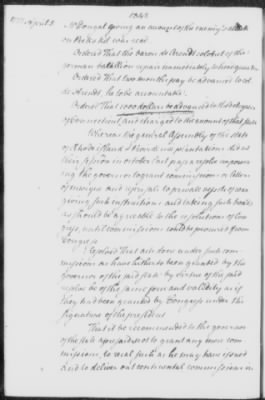 1345
1777. April 3.
McDougal giving an account of the enemy's attack
on Peekskill was read
Ordered That the baron de Arendt colonel of the
german battalion repair immediately to head quarters
Ordered That two months pay be advanced to col
de Arendt, he to be accountable.
Ordered That 1000 dollars be advanced to the delegates
of Connecticut, and charged to the account of that state
Whereas the general Assembly of the state
of Rhode island & Providence plantations did at
their session in october last pass a resolve impowering
the governor to grant commissions or letters
of marque and reprisal to private vessels of war
giving such instructions and taking such bonds
as should be agreeable to the resolutions of Congress,
until commissions could be procured from
Congress
Resolved That acts done under such com
missions as have hitherto been granted by the
Governor of the said state by virtue of the said
resolve be of the same force and validity as if
they had been granted by Congress under the
signature of the president
That it be recommended to the governor
of the state aforesaid not to grant any more com
missions, to recal such as he may have issued
and to deliver out continental commissions in